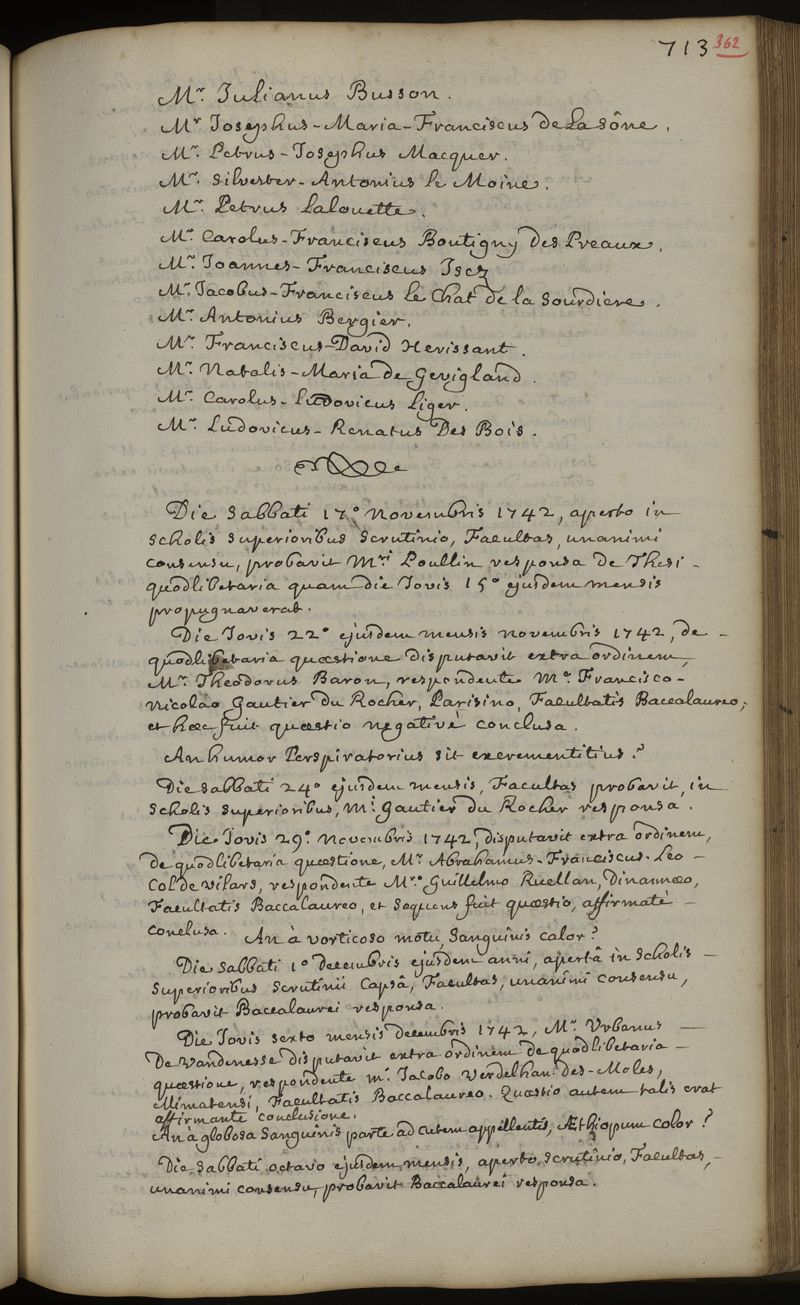 713 362
Mr. Julianus Busson.
Mr Josephus-Maria-Franciscus de La Sône,
Mr. Petrus-Josephus Macquer.
Mr. Silvester-Antonius le Moine.
Mr. Petrus Lalouette.
Mr. Carolus-Franciscus Boutigny Des Preaux,
Mr. Joannes-Franciscus Isez
Mr. Jacobus-Franciscus le Chat de la Sourdiere.
Mr. Antonius Bergier.
Mr. Franciscus-David Herissant.
Mr. Natalis-Maria de Gevigland.
Mr. Carolus-Ludovicus Liger.
Mr. Ludovicus-Renatus Des Bois.
Die Sabbati 17° Novembris 1742, aperto in
Scholis Superioribus Scrutinio, Facultas, unanimi
consensu, probavit Mri Poullin responsa de Thesi
quodlibetaria quam die Jovis 15° ejusdem mensis
propugnaverat.
Die Jovis 22° ejusdem mensis novembris 1742, de
quodlibetaria quæstione disputavit extra ordinem,
Mr. Theodorus Baron, respondente Mo. Francisco-
Nicolao Gautier du Rocher, Parisino, Facultatis Baccalaureo,
et hæc fuit quæstio negativè conclusa.
An humor Perspiratorius sit excrementitius?
Die Sabbati 24° ejusdem mensis, Facultas probavit, in
Scholis Superioribus, Mi. Gautier du Rocher responsa.
Die Jovis 29° Novembris 1742, disputavit extra ordinem,
de quodlibetaria quæstione, Mr. Abrahamus-Franciscus-Leo
Col de Vilars, respondente Mro. Guillelmo Ruellan, Dinannæo,
Facultatis Baccalaureo, et sequens fuit quæstio, affirmatè
conclusa. An à vorticoso motu, Sanguinis calor?
Die Sabbati 1° decembris ejusdem anni, apertâ in Scholis
Superioribus Scrutinii Capsâ, Facultas, unanimi consensu,
probavit Baccalaurei responsa.
Die Jovis sexto mensis decembris 1742, Mr. Urbanus
De Vandenesse disputavit extra ordinem de quodlibetaria
quæstione, respondente mo. Jacobo Verdelhan-des-Moles,
Mimatensi, Facultatis Baccalaureo. Quæstio autem talis erat
affirmante conclusione.
An à globosa Sanguinis parte ad cutem appellentis, Æthiopum color?
Die Sabbati octavo ejusdem mensis, aperto Scrutinio, Facultas,
unanimi consensu, probavit Baccalaurei responsa.